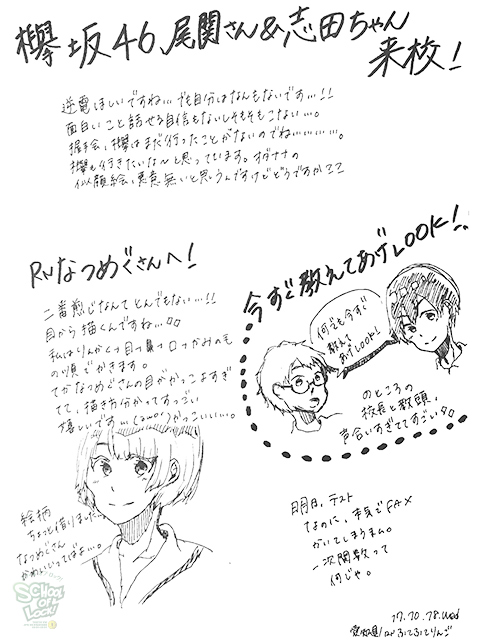 欅坂46、尾関さん&志田ちゃん
来校!
逆電ほしいですね…でも自分はなんもないです…!!
面白いこと話せる自信もないしそもそもこない…。
握手会、欅はまだ行ったことがないのでね…………。
欅も行きたいな〜と思っています。オダナナの
似顔絵、悪意無いと思うんですけどどうですか
RNなつめぐさんへ!
二番煎じなんてとんでもない…!!
目から描くんですね…
私はりんかく→目→鼻→口→かみの毛
の順でかきます。
てかなつめぐさんの目がかっこよすぎ
てて、描き方分かってすっごい
嬉しいです…かっこいいい…。
絵柄
ちょっと借りました…
なつめぐさん
かわいいってばよ…。
今すぐ教えてあげLOOK!
何でも今すぐ
教えて
あげLOOK!
のところの
校長と教頭、
声合いすぎててすごい
明日、テスト
なのに、本気でFAX
かいてしまうまん。
一次関数って
何じゃ。
SCHOOL
OF
LOCK!
17.10.18.wed
愛知県